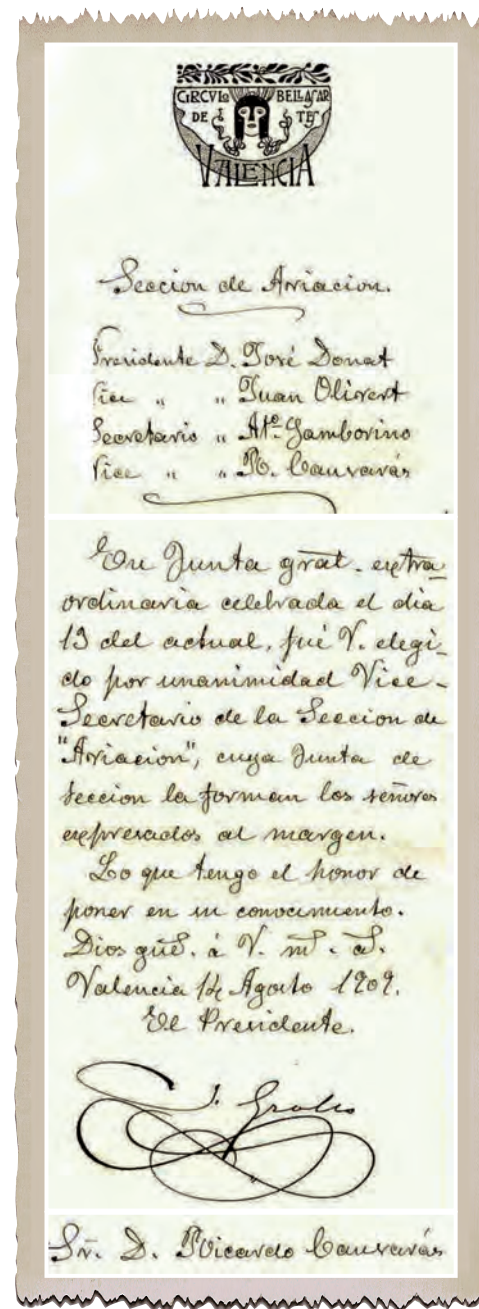 CIRCVLO BELLAS AR
DE TES
VALENCIA
Seccion de Aviacion.
Presidente D. José Donat
Vice " " Juan Olivert
Secretario " Atº. Gamborino
Vice " " R. Causarás
En Junta gral. extra-
ordinaria celebrada el dia
13 del actual, fué V. elegi-
do por unanimidad Vice-
Secretario de la Seccion de
"Aviacion", cuya Junta de
seccion la forman los señores
expresados al margen.
Lo que tengo el honor de
poner en su conocimiento.
Dios güe. á V. ms. as.
Valencia 14 Agosto 1909.
El Presidente.
J.
Sr. D. Ricardo Causarás